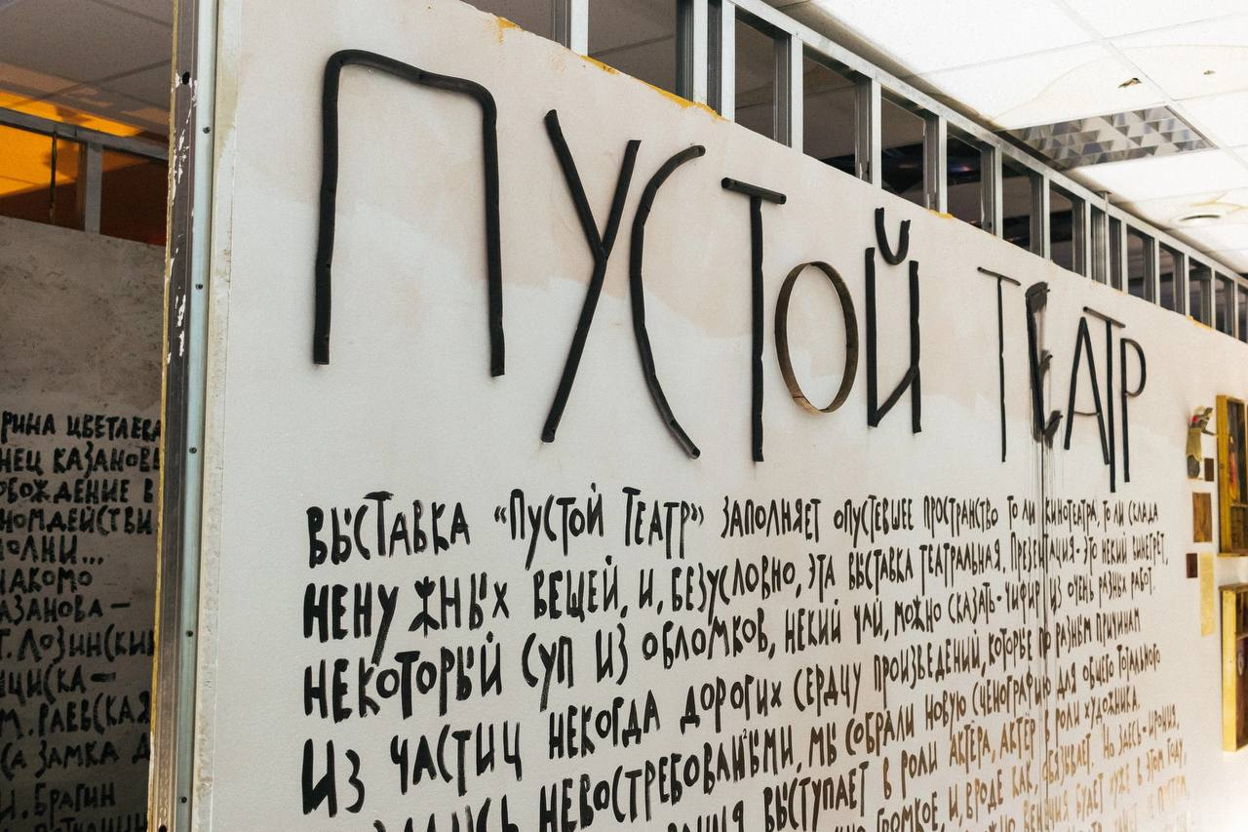 ПУСТОЙ ТЕАТР
ВЫСТАВКА «ПУСТОЙ ТЕАТР» ЗАПОЛНЯЕТ ОПУСТЕВШЕЕ ПРОСТРАНСТВО ТО ЛИ КИНОТЕАТРА, ТО ЛИ СКЛАДА
НЕНУЖНЫХ ВЕЩЕЙ, И, БЕЗУСЛОВНО, ЭТА ВЫСТАВКА ТЕАТРАЛЬНАЯ. ПРЕЗЕНТАЦИЯ - ЭТО НЕКИЙ ВИНЕГРЕТ,
НЕКОТОРЫЙ СУП ИЗ ОБЛОМКОВ, НЕКИЙ ЧАЙ, МОЖНО СКАЗАТЬ - ЧИФИР ИЗ ОЧЕНЬ РАЗНЫХ РАБОТ.
ИЗ ЧАСТИЦ НЕКОГДА ДОРОГИХ СЕРДЦУ ПРОИЗВЕДЕНИЙ, КОТОРЫЕ ПО РАЗНЫМ ПРИЧИНАМ
НЕВОСТРЕБОВАННЫМИ, МЫ СОБРАЛИ НОВУЮ СЦЕНОГРАФИЮ ДЛЯ ОБЩЕГО ТОТАЛЬНОГО
ВЫСТУПАЕТ В РОЛИ АКТЁРА, АКТЁР В РОЛИ ХУДОЖНИКА.
ГРОМКОЕ И, ВРОДЕ КАК, ОБЯЗЫВАЕТ. НО ЗДЕСЬ - ИРОНИЯ,
БУДЕТ УЖЕ В ЭТОМ ГОДУ,
РИНА ЦВЕТАЕВА
НЕЦ КАЗАНОВЫ
ОБОЖДЕНИЕ В
НОМДЕЙСТВИ
ПОЛНИ...
НАКОМО
АЗАНОВА —
Г. ЛОЗИНСКИЙ
ЦИСКА —
М. РАЕВСКАЯ
СА ЗАМКА Д
И. БРАГИН